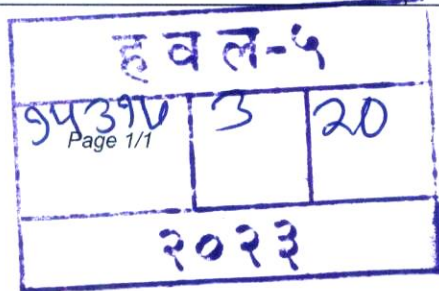 हवल-५
१५३१५ ३ २०
Page 1/1
२०२३